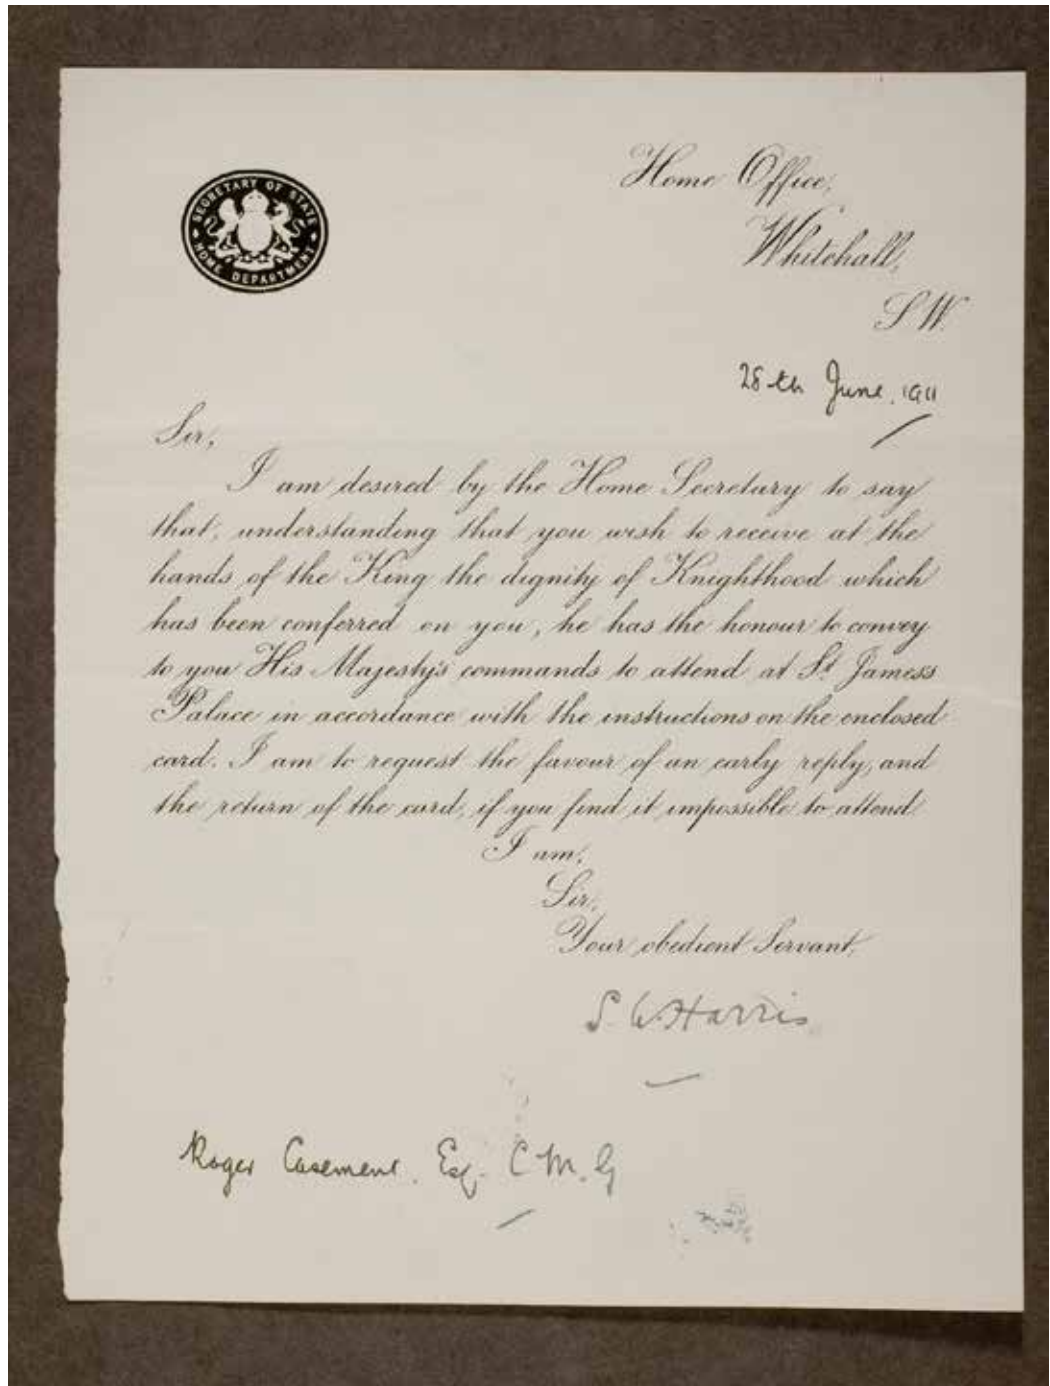 SECRETARY OF STATE
HOME DEPARTMENT
Home Office,
Whitehall,
S.W.
28th June, 1911
Sir,
I am desired by the Home Secretary to say
that, understanding that you wish to receive at the
hands of the King the dignity of Knighthood which
has been conferred on you, he has the honour to convey
to you His Majesty's commands to attend at St James's
Palace in accordance with the instructions on the enclosed
card. I am to request the favour of an early reply, and
the return of the card, if you find it impossible to attend.
I am,
Sir,
Your obedient Servant,
S. W. Harris
Roger Casement. Esq. C.M.G